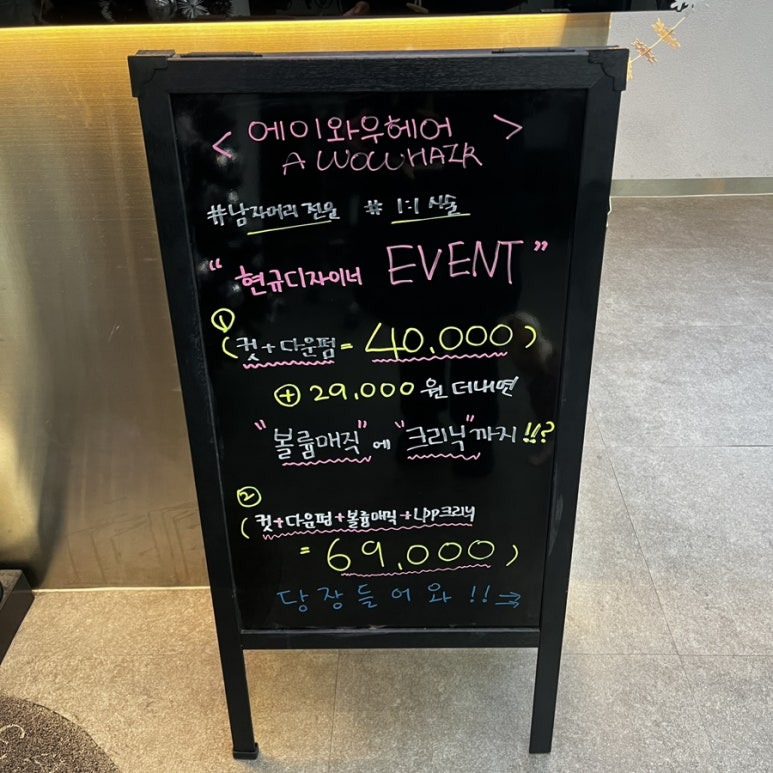 < 에이와우헤어 >
A WOWHAIR
#남자머리 전용 # 1:1 시술
" 현규디자이너 EVENT "
①
( 컷+다운펌 = 40,000 )
⊕ 29,000 원 더내면
"볼륨매직"에 "크리닉"까지 !!?
②
( 컷+다운펌+볼륨매직+LPP크리닉
= 69,000 )
당장들어와 !! →